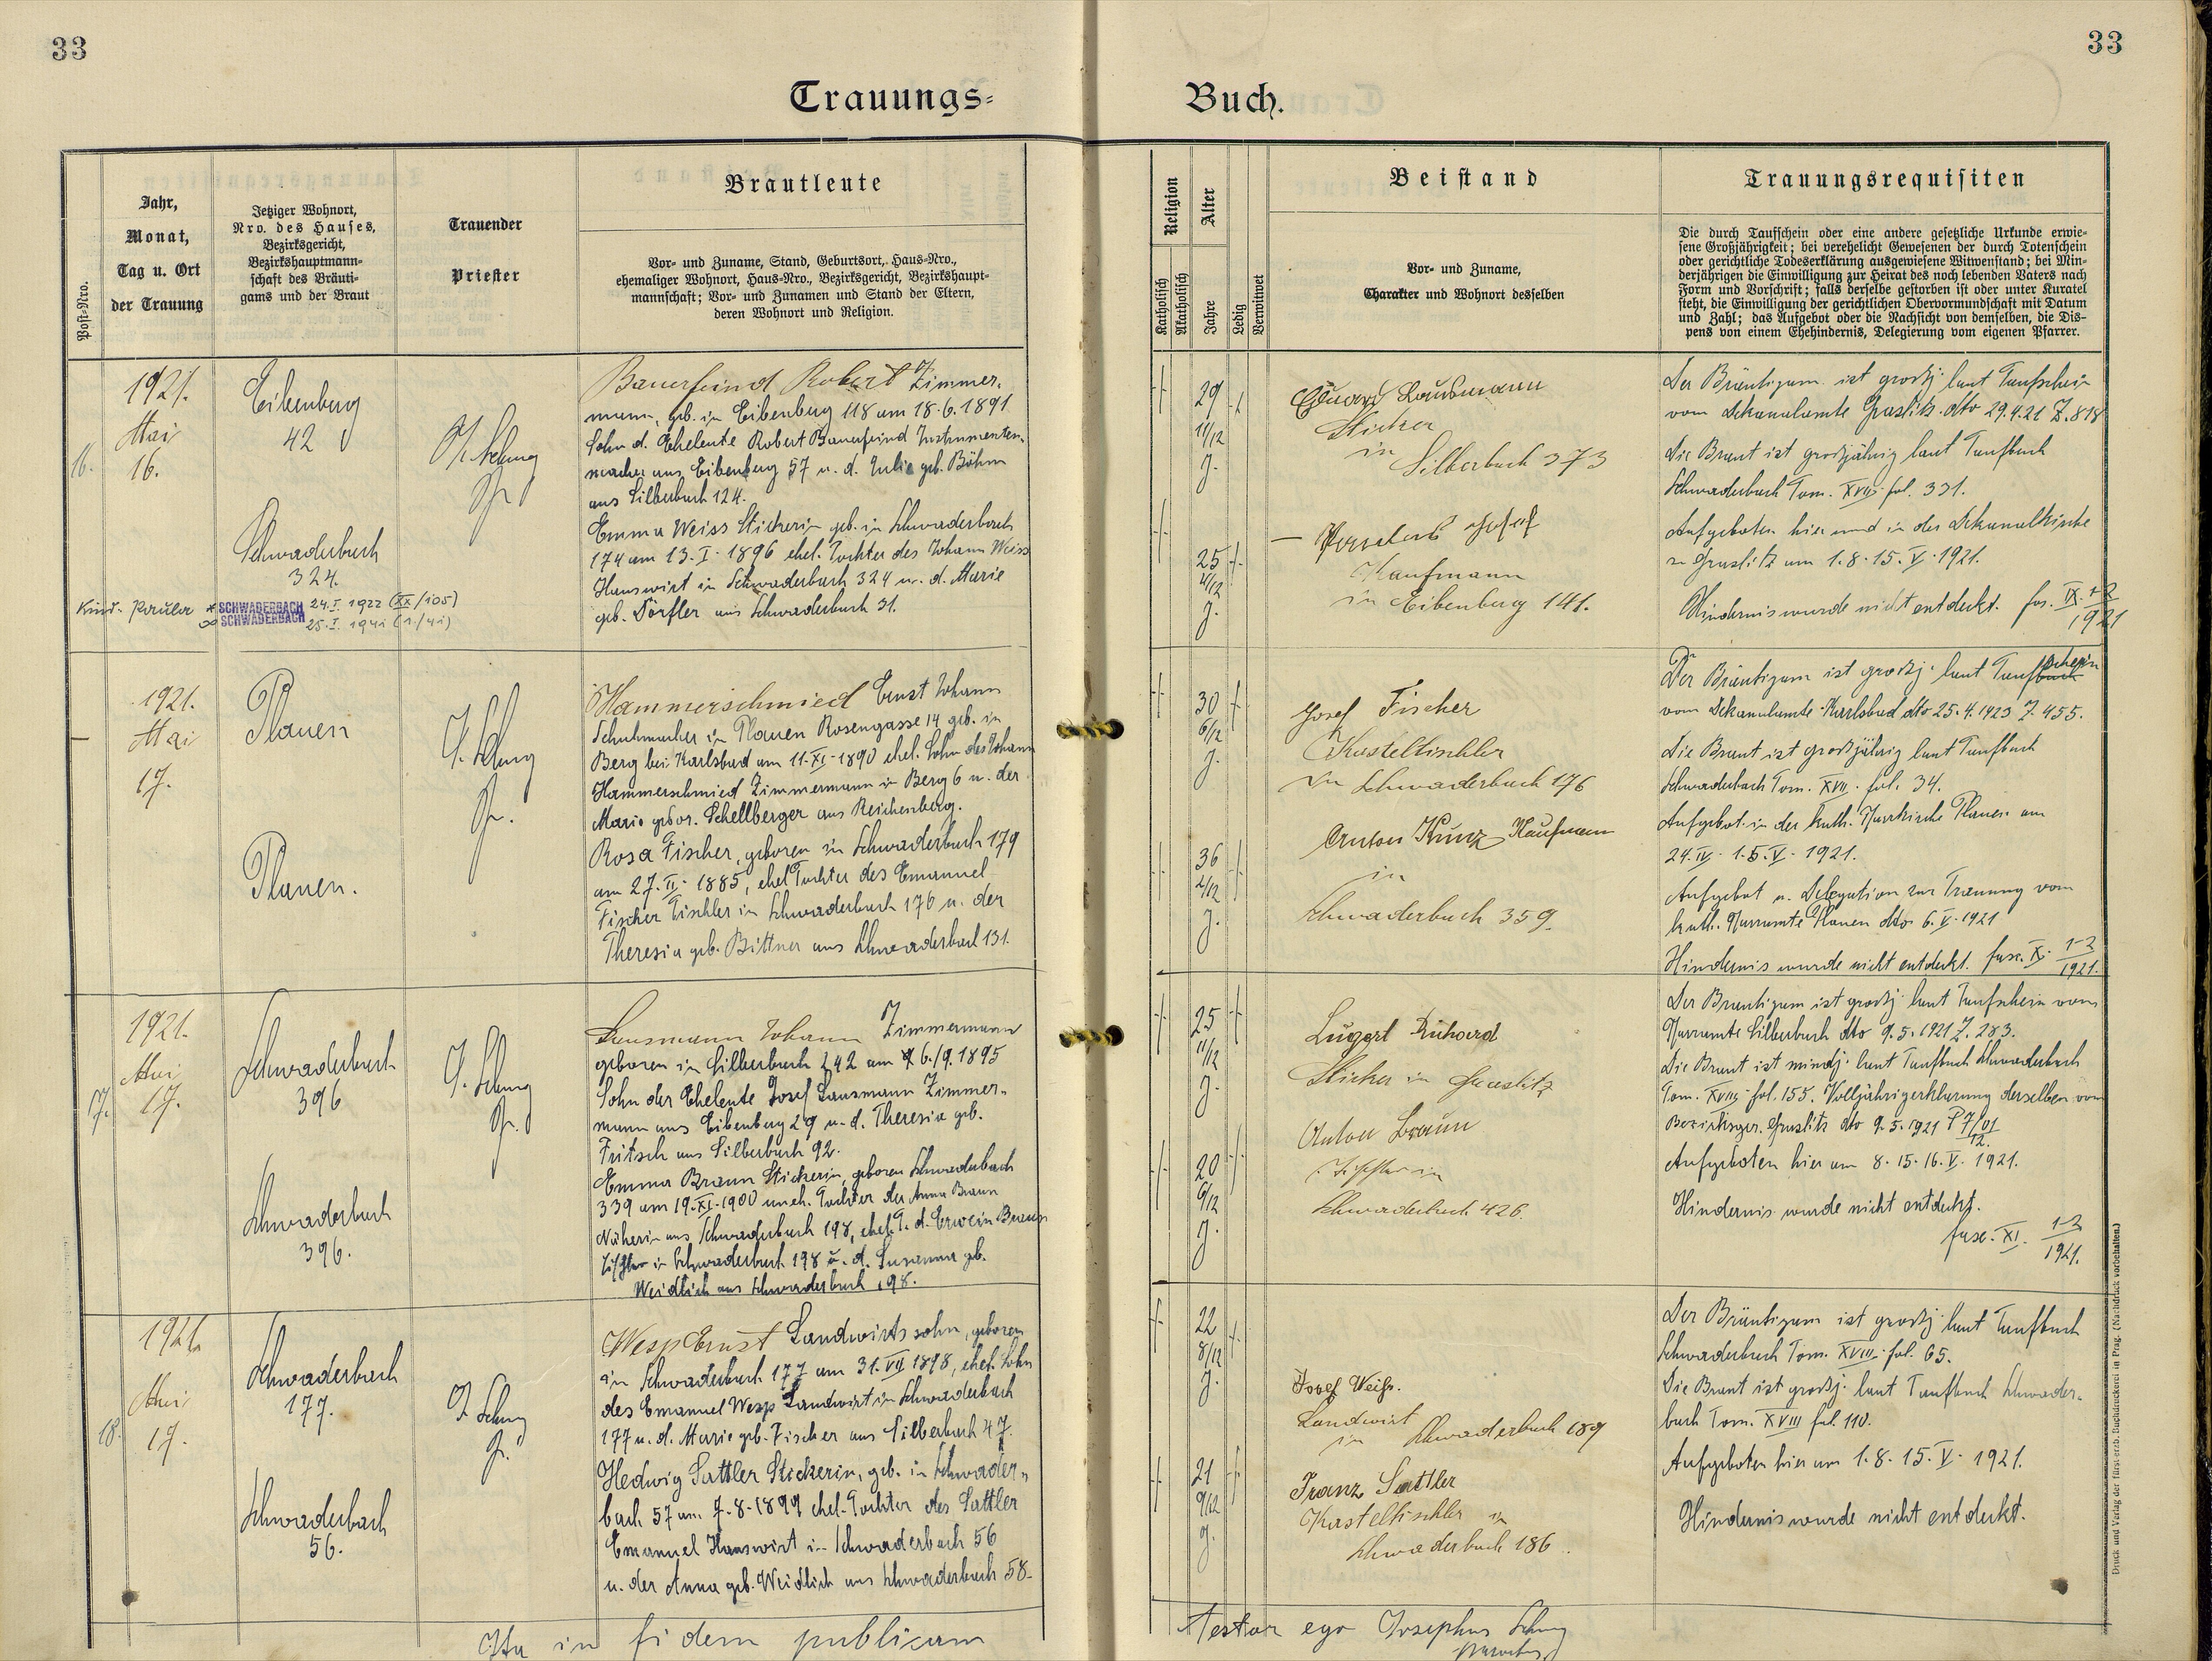 33
33
Trauungs=
Buch.
Post-Nro.
Jahr,
Monat,
Tag u. Ort
der Trauung
Jetziger Wohnort,
Nro. des Hauses,
Bezirksgericht,
Bezirkshauptmann-
schaft des Bräuti-
gams und der Braut
Trauender
Priester
Brautleute
Vor- und Zuname, Stand, Geburtsort, Haus-Nro.,
ehemaliger Wohnort, Haus-Nro., Bezirksgericht, Bezirkshaupt-
mannschaft; Vor- und Zunamen und Stand der Eltern,
deren Wohnort und Religion.
Religion
Katholisch
Akatholisch
Alter
Jahre
Ledig
Verwitwet
Beistand
Vor- und Zuname,
Charakter und Wohnort desselben
Trauungsrequisiten
Die durch Taufschein oder eine andere gesetzliche Urkunde erwie-
sene Großjährigkeit; bei verehelicht Gewesenen der durch Totenschein
oder gerichtliche Todeserklärung ausgewiesene Witwenstand; bei Min-
derjährigen die Einwilligung zur Heirat des noch lebenden Vaters nach
Form und Vorschrift; falls derselbe gestorben ist oder unter Kuratel
steht, die Einwilligung der gerichtlichen Obervormundschaft mit Datum
und Zahl; das Aufgebot oder die Nachsicht von demselben, die Dis-
pens von einem Ehehindernis, Delegierung vom eigenen Pfarrer.
16.
1921.
Mai
16.
Eibenberg
42
Schwaderbach
324.
SCHWADERBACH 24.I.1922 (XX/105)
SCHWADERBACH 25.I.1941 (1./41)
Bauerfeind Robert Zimmer-
mann, geb. in Eibenberg 118 am 18.6.1891
Sohn d. Eheleute Robert Bauerfeind Instrumenten-
macher aus Eibenberg 57 u. d. Julie geb. Böhm
aus Silberbach 124.
Emma Weiss Stickerin geb. in Schwaderbach
174 am 13.I.1896 ehel. Tochter des Johann Weiss
Hauswirt in Schwaderbach 324 u. d. Marie
geb. Dörfler aus Schwaderbach 31.
29
11/12
J.
25
4/12
J.
Eduard Lausmann
Sticker
in
Silberbach 373
Josef
Kaufmann
in Eibenberg 141.
Der Bräutigam ist großj. laut Taufschein
vom Dekanalamte Graslitz dto 29.4.21 Z. 818
Die Braut ist großjährig laut Taufbuch
Schwaderbach Tom. XVII fol. 331.
Aufgeboten hier und in der Dekanalkirche
zu Graslitz am 1.8.15.V.1921.
Hindernis wurde nicht entdeckt. fas. IX. 1-2
1921
1921.
Mai
17.
Plauen
Plauen.
Hammerschmied Ernst Johann
Schuhmacher in Plauen Rosengasse 14 geb. in
Berg bei Karlsbad am 11.XI.1890 ehel. Sohn des Johann
Hammerschmied Zimmermann in Berg 6 u. der
Marie gebor. Schellberger aus Reichenberg.
Rosa Fischer, geboren in Schwaderbach 179
am 27.II.1885, ehel Tochter des Emanuel
Fischer Tischler in Schwaderbach 176 u. der
Theresia geb. Bittner aus Schwaderbach 131.
30
6/12
J.
36
2/12
J.
Josef Fischer
Kasteltischler
in Schwaderbach 176
Anton Kunz Kaufmann
in
Schwaderbach 359.
Der Bräutigam ist großj. laut Taufbuch schein
vom Dekanalamte Karlsbad dto 25.4.1923 Z. 455.
Die Braut ist großjährig laut Taufbuch
Schwaderbach Tom. XVII. fol. 34.
Aufgebot in der kath. Pfarrkirche Plauen am
24.IV. 1.5.V. 1921.
Aufgebot u. Delegation zur Trauung vom
kath. Pfarramte Plauen dto 6.V.1921
Hindernis wurde nicht entdeckt. fasc. X. 1-2
1921.
17.
1921.
Mai
17.
Schwaderbach
396
Schwaderbach
396.
Lausmann Johann Zimmermann
geboren in Silberbach 242 am 6./9.1895
Sohn der Eheleute Josef Lausmann Zimmer-
mann aus Eibenberg 29 u. d. Theresia geb.
Fritsch aus Silberbach 92.
Emma Braun Stickerin, geboren Schwaderbach
339 am 19.XI.1900 uneh. Tochter der Anna Braun
Näherin aus Schwaderbach 198, ehel. T. d. Erwein Braun
Tischler in Schwaderbach 198 u. d. Susanna geb.
Weidlich aus Schwaderbach 198.
25
11/12
J.
20
6/12
J.
Lugert Richard
Sticker in Graslitz
Anton Braun
Tischler in
Schwaderbach 426.
Der Bräutigam ist großj. laut Taufschein vom
Pfarramte Silberbach dto 9.5.1921 Z. 283.
Die Braut ist mindj. laut Taufbuch Schwaderbach
Tom. XVIII fol. 155. Volljährigerklärung derselben vom
Bezirksger. Graslitz dto 9.5.1921 P 7/01
12.
Aufgeboten hier am 8.15.16.V. 1921.
Hindernis wurde nicht entdeckt.
fasc. XI. 1-2
1921.
18.
1921.
Mai
17.
Schwaderbach
177.
Schwaderbach
56.
Wesp Ernst Landwirtssohn, geboren
in Schwaderbach 177 am 31.VII 1898, ehel. Sohn
des Emanuel Wesp Landwirt in Schwaderbach
177 u. d. Marie geb. Fischer aus Silberbach 47.
Hedwig Sattler Stickerin, geb. in Schwader-
bach 57 am 7.8.1899 ehel. Tochter des Sattler
Emanuel Hauswirt in Schwaderbach 56
u. der Anna geb. Weidlich aus Schwaderbach 58.
22
8/12
J.
21
9/12
J.
Josef Weiß.
Landwirt
in Schwaderbach 189
Franz Sattler
Kasteltischler in
Schwaderbach 186.
Der Bräutigam ist großj. laut Taufbuch
Schwaderbach Tom. XVIII. fol. 65.
Die Braut ist großj. laut Taufbuch Schwader-
bach Tom. XVIII fol. 110.
Aufgeboten hier am 1.8.15.V. 1921.
Hindernis wurde nicht entdeckt.
Ita in fidem publicam
Testor ego Josephus
Druck und Verlag der fürsterzb. Buchdruckerei in Prag. (Nachdruck vorbehalten.)